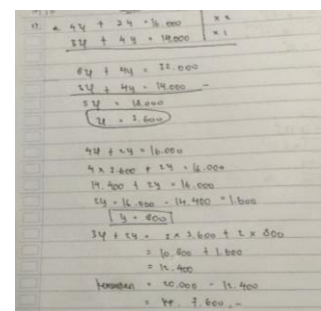 17. a. 4x + 2y = 16.000 | x 2
3x + 4y = 14.000 | x 1
8x + 4y = 32.000
3x + 4y = 14.000 -
5x = 18.000
x = 3.600
4x + 2y = 16.000
4 x 3.600 + 2y = 16.000
14.400 + 2y = 16.000
2y = 16.000 - 14.400 = 1.600
y = 800
3x + 2y = 3 x 3.600 + 2 x 800
= 10.800 + 1.600
= 12.400
= 20.000 - 12.400
= Rp. 7.600,-